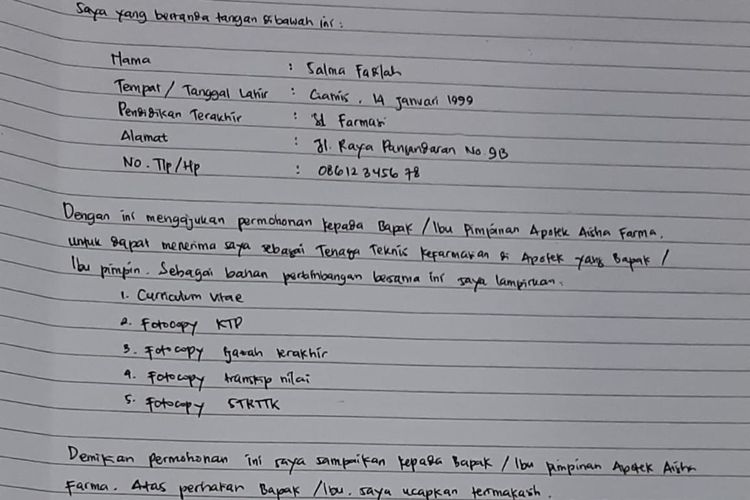 Saya yang bertanda tangan dibawah ini :
Nama : Salma Fadlah
Tempat / Tanggal Lahir : Ciamis, 14 Januari 1999
Pendidikan Terakhir : S1 Farmasi
Alamat : Jl. Raya Pangandaran No. 9B
No. Tlp / Hp : 086123456 78
Dengan ini mengajukan permohonan kepada Bapak / Ibu Pimpinan Apotek Aisha Farma,
untuk dapat menerima saya sebagai Tenaga Teknis Kefarmasian di Apotek yang Bapak /
Ibu pimpin. Sebagai bahan pertimbangan bersama ini saya lampirkan :
1. Curriculum Vitae
2. Fotocopy KTP
3. Fotocopy Ijazah terakhir
4. Fotocopy transkip nilai
5. Fotocopy STRTTK
Demikian permohonan ini saya sampaikan kepada Bapak / Ibu pimpinan Apotek Aisha
Farma. Atas perhatian Bapak / Ibu, saya ucapkan terimakasih.